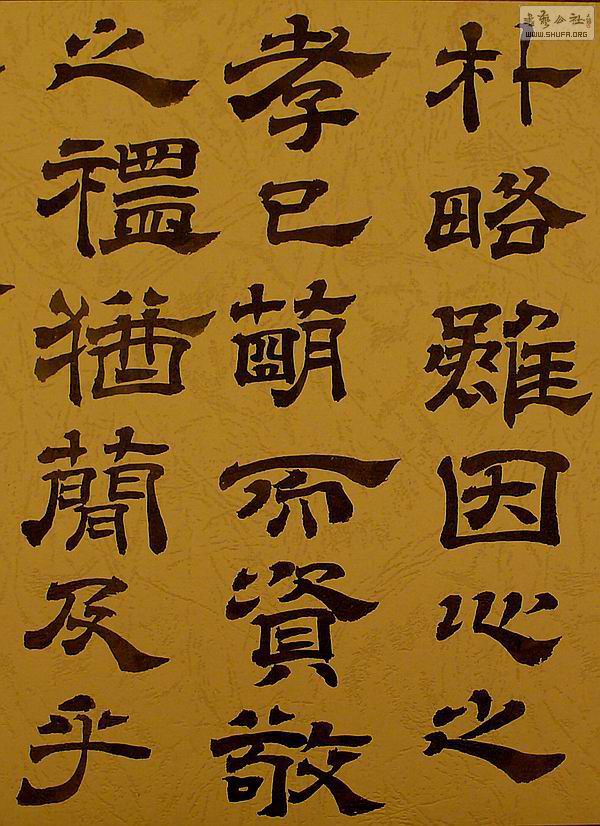 朴略雖因心之
孝已萌而資敬
之禮猶簡及乎
書藝公社
WWW.SHUFA.ORG